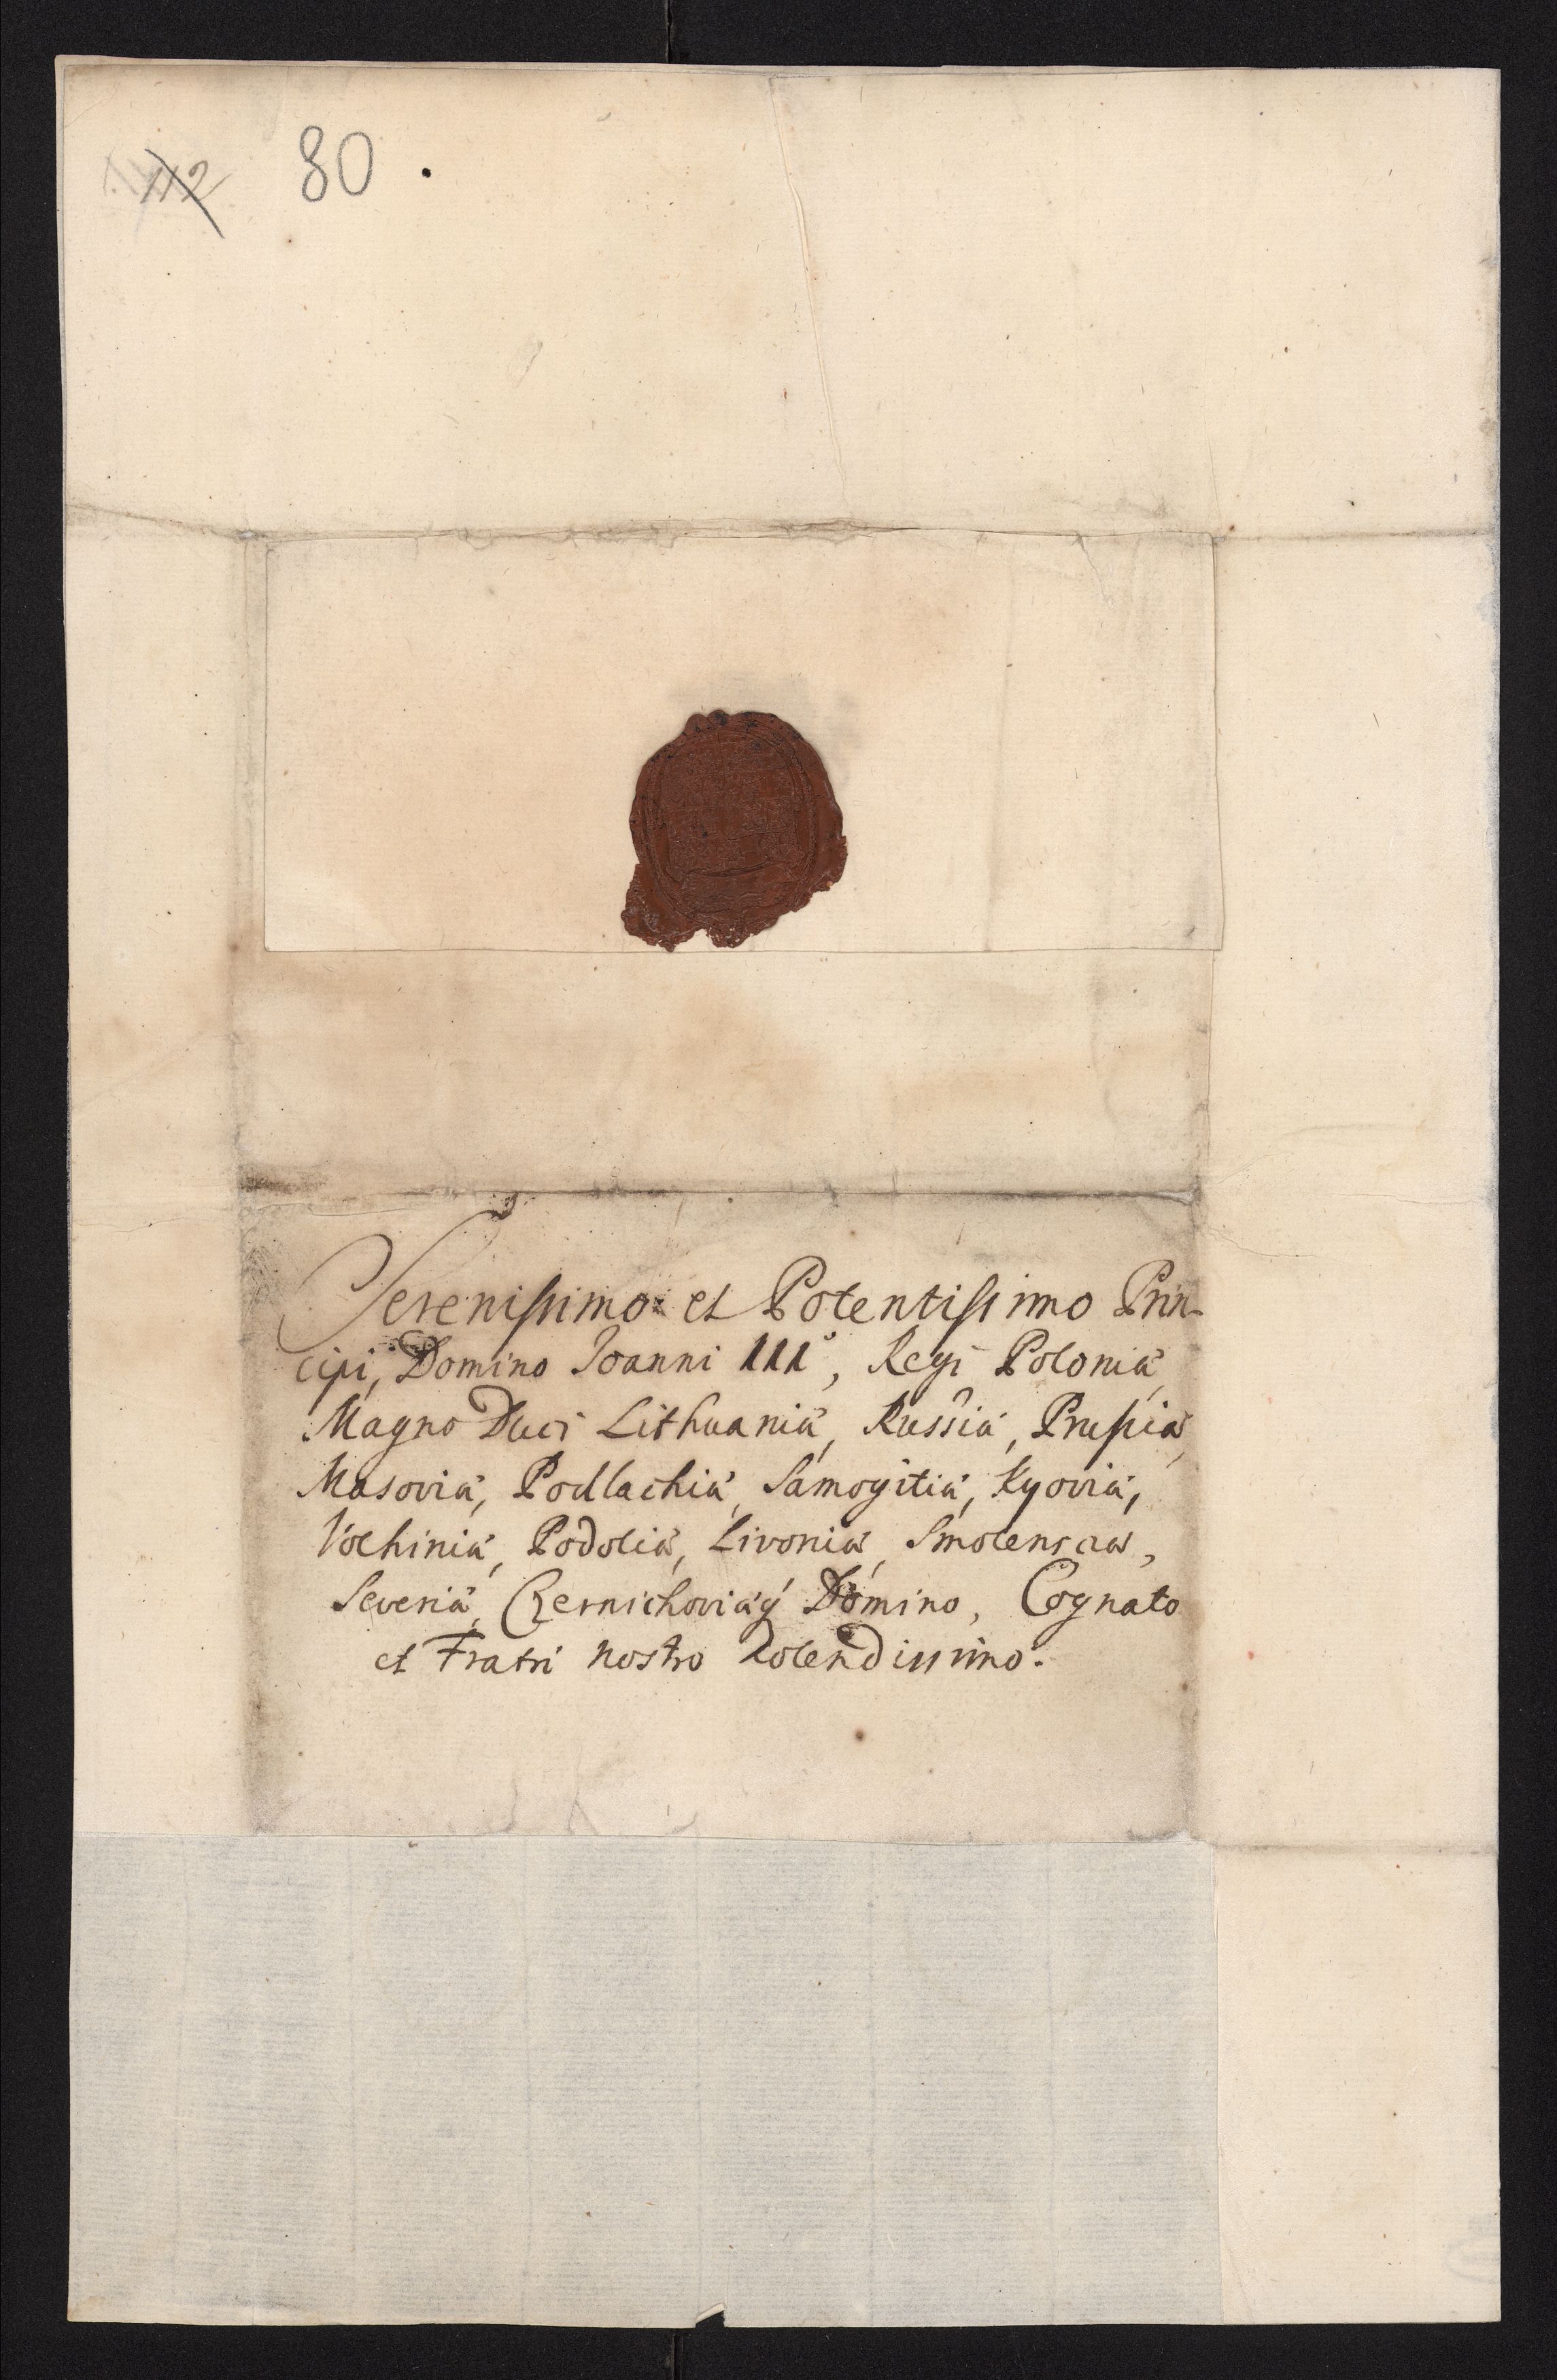 112 80.
Serenissimo et Potentissimo Prin-
cipi, Domino Joanni III°, Regi Poloniæ,
Magno Duci Lithuaniæ, Russiæ, Prussiæ,
Masoviæ, Podlachiæ, Samogitiæ, Kyoviæ,
Volhiniæ, Podoliæ, Livoniæ, Smolensciæ,
Severiæ, Czernichoviæq́ Domino, Cognato
et Fratri nostro Colendissimo.